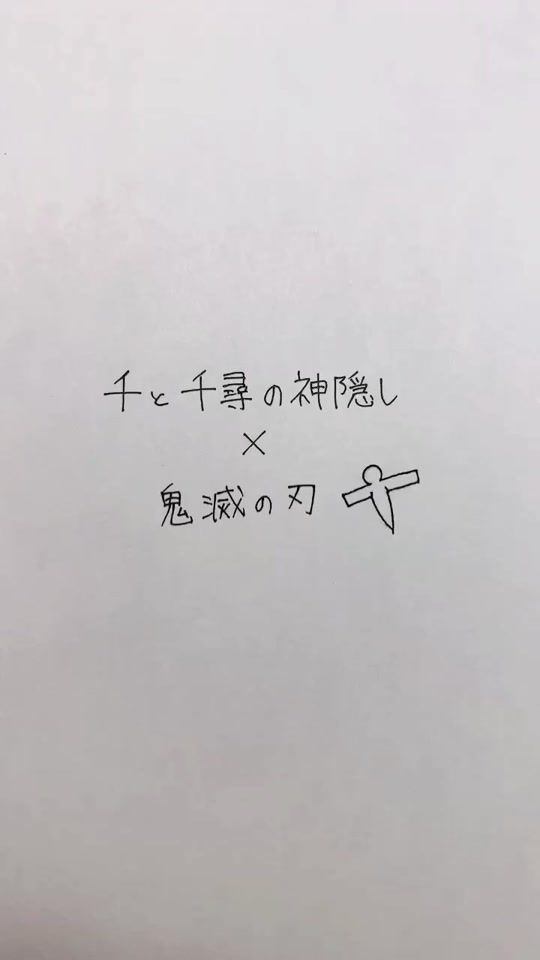 千と千尋の神隠し
×
鬼滅の刃